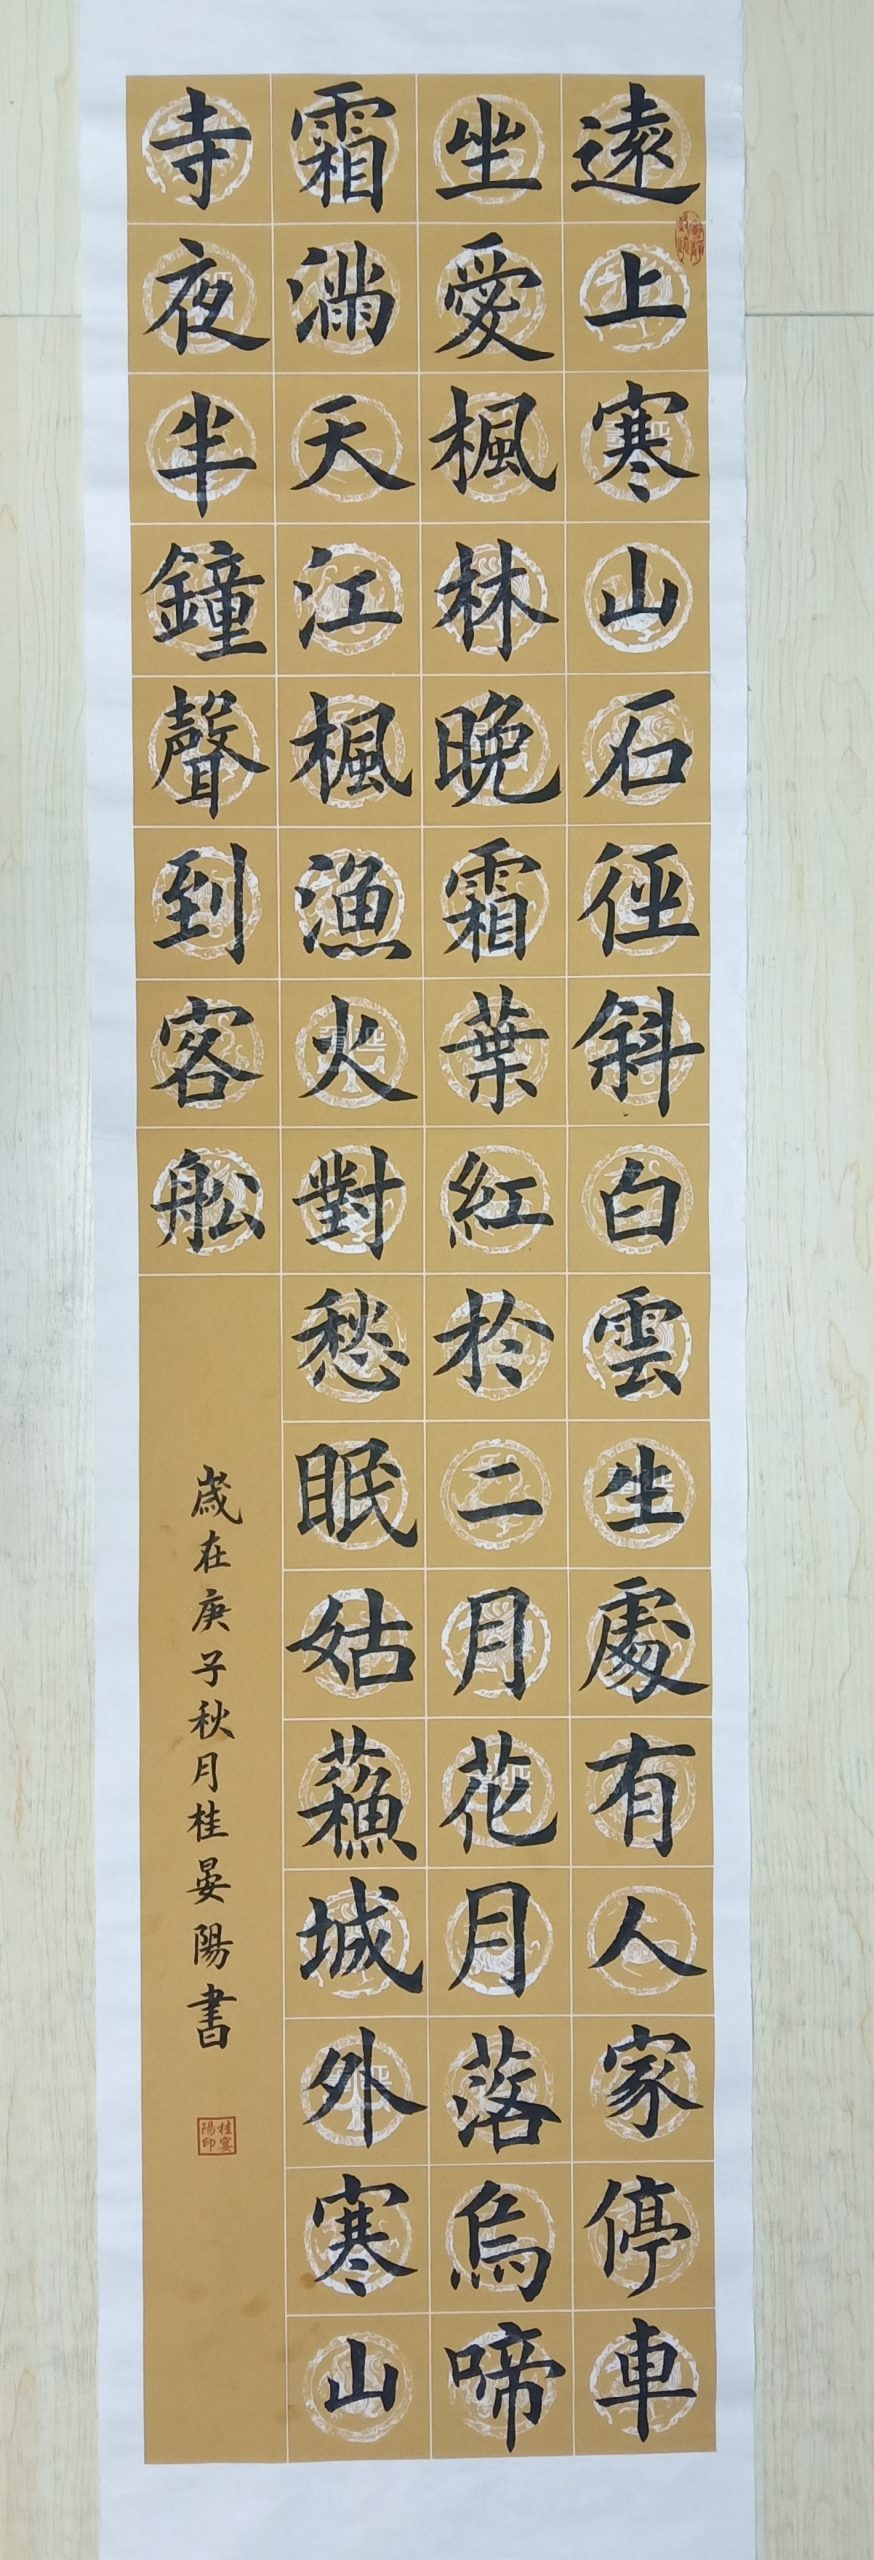 遠上寒山石徑斜白雲生處有人家停車
坐愛楓林晚霜葉紅於二月花月落烏啼
霜滿天江楓漁火對愁眠姑蘇城外寒山
寺夜半鐘聲到客船
歲在庚子秋月桂晏陽書
桂宴
陽印